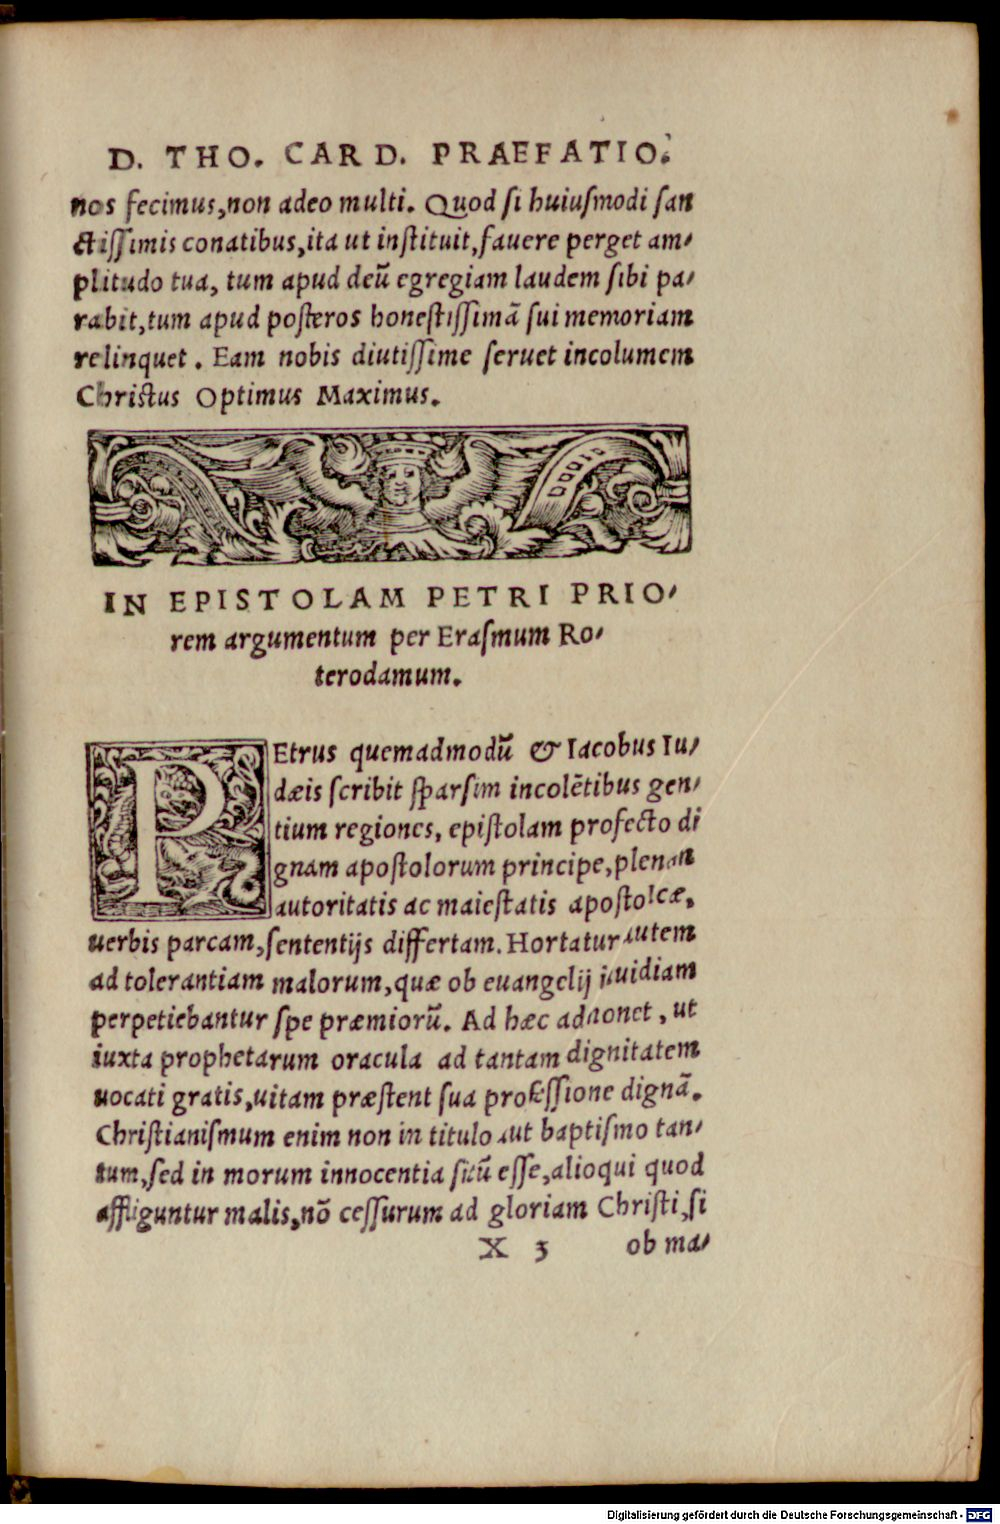 D. THO. CARD. PRAEFATIO.
nos fecimus, non adeo multi. Quod ſi huiuſmodi ſan
ctiſſimis conatibus, ita ut inſtituit, fauere perget am-
plitudo tua, tum apud deũ egregiam laudem ſibi pa-
rabit, tum apud poſteros honeſtiſſimã ſui memoriam
relinquet. Eam nobis diutiſſime ſeruet incolumem
Chriſtus Optimus Maximus.
IN EPISTOLAM PETRI PRIO-
rem argumentum per Eraſmum Ro-
terodamum.
PEtrus quemadmodũ & Iacobus Iu-
dæis ſcribit ſparſim incolẽtibus gen-
tium regiones, epiſtolam profecto di
gnam apoſtolorum principe, plenam
autoritatis ac maieſtatis apoſtolcæ,
uerbis parcam, ſententijs differtam. Hortatur autem
ad tolerantiam malorum, quæ ob euangelij inuidiam
perpetiebantur ſpe præmiorũ. Ad hæc admonet, ut
iuxta prophetarum oracula ad tantam dignitatem
uocati gratis, uitam præſtent ſua profeſſione dignã.
Chriſtianiſmum enim non in titulo aut baptiſmo tan-
tum, ſed in morum innocentia ſitũ eſſe, alioqui quod
affliguntur malis, nõ ceſſurum ad gloriam Chriſti, ſi
X 3 ob ma-
Digitalisierung gefördert durch die Deutsche Forschungsgemeinschaft - DFG